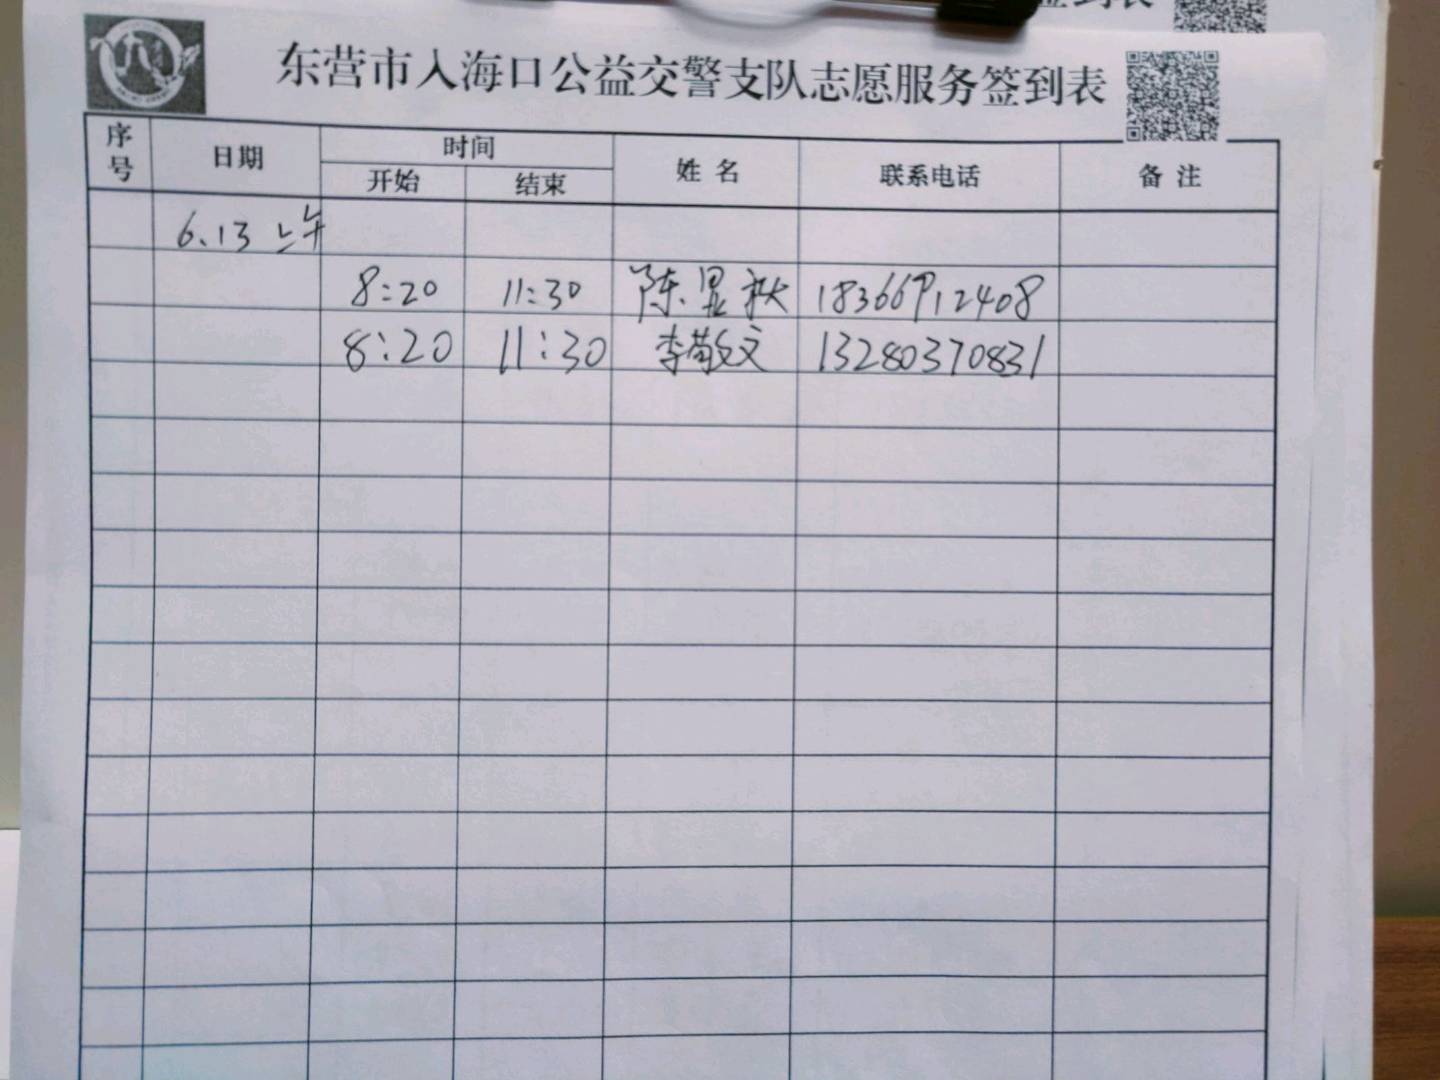 东营市入海口公益交警支队志愿服务签到表
序号 日期 时间 姓名 联系电话 备注
开始 结束
6.13 上午
8:20 11:30 陈显秋 18366912408
8:20 11:30 李敬文 13280370831